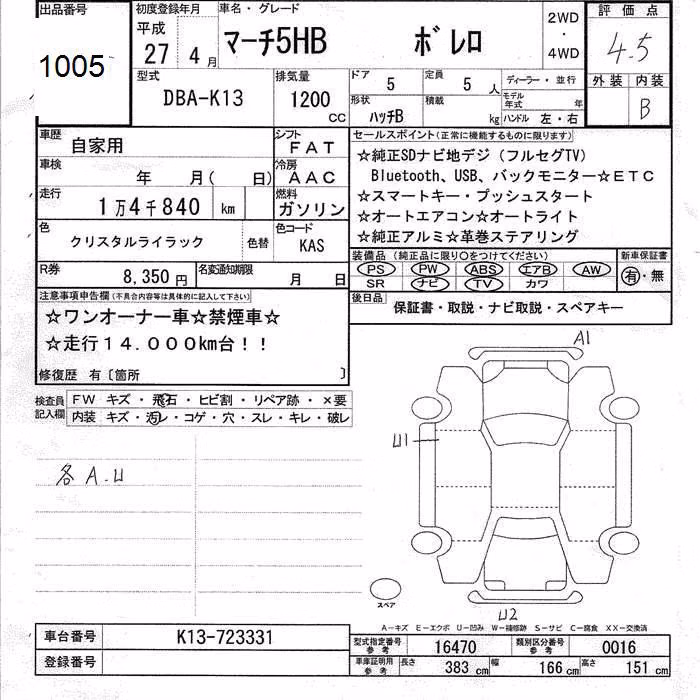 出品番号 初度登録年月 車名・グレード 評価点
1005 平成 27 4月 マーチ5HB ボレロ 2WD・4WD 4.5
型式 排気量 ドア 定員 ディーラー・並行 外装 内装
DBA-K13 1200cc 5 5人 B
形状 積載 モデル年式 年
ハッチB kg ハンドル 左・右
車歴 シフト セールスポイント(正常に機能するものに限ります)
自家用 FAT ☆純正SDナビ地デジ(フルセグTV)
車検 冷房 Bluetooth、USB、バックモニター☆ETC
年 月(日) AAC ☆スマートキー・プッシュスタート
走行 燃料 ☆オートエアコン☆オートライト
1万4千840 km ガソリン ☆純正アルミ☆革巻ステアリング
色 色替 色コード 装備品(純正品に限り○をつけてください) 新車保証書
クリスタルライラック KAS PS PW ABS エアB AW 有・無
R券 8,350円 名変通知期限 月 日 SR ナビ TV カワ
注意事項申告欄(不具合内容等は具体的に記入して下さい) 後日品 保証書・取説・ナビ取説・スペアキー
☆ワンオーナー車☆禁煙車☆
☆走行14.000km台!!
修復歴 有〔箇所 〕
検査員記入欄 FW キズ・飛石・ヒビ割・リペア跡・×要
内装 キズ・汚レ・コゲ・穴・スレ・キレ・破レ
A1
U1
各A.U
スペア
U2
A-キズ E-エクボ U-凹み W-補修跡 S-サビ C-腐食 XX-交換済
車台番号 K13-723331 型式指定番号 参考 16470 類別区分番号 参考 0016
登録番号 車庫証明用 参考 長さ 383cm 幅 166cm 高さ 151cm